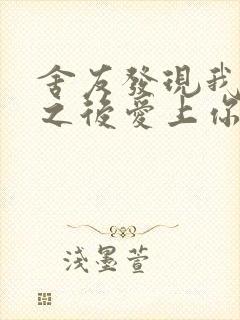 舍友發現我
之後愛上你
淺墨萱